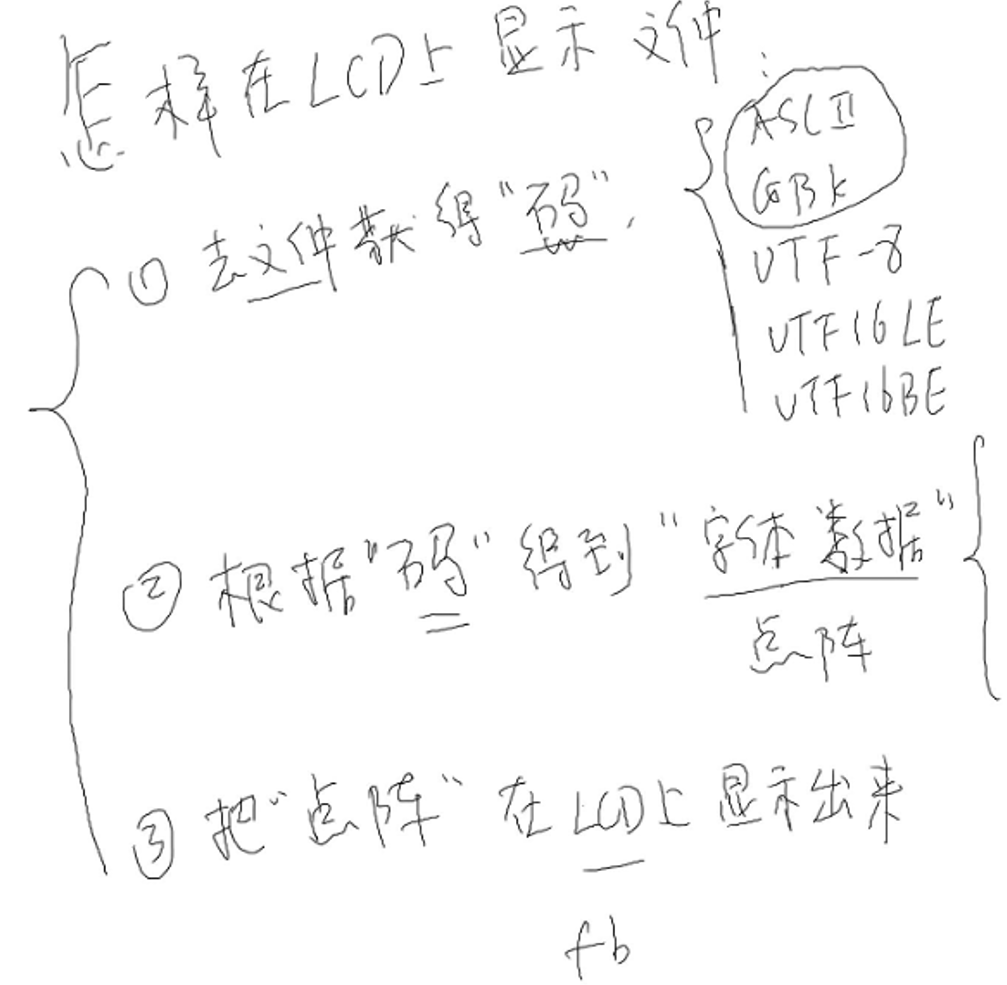 怎样在LCD上显示文件:
① 去文件获得"码",
ASCII
GBK
UTF-8
UTF16LE
UTF16BE
② 根据"码"得到"字体数据"
点阵
③ 把"点阵"在LCD上显示出来
fb